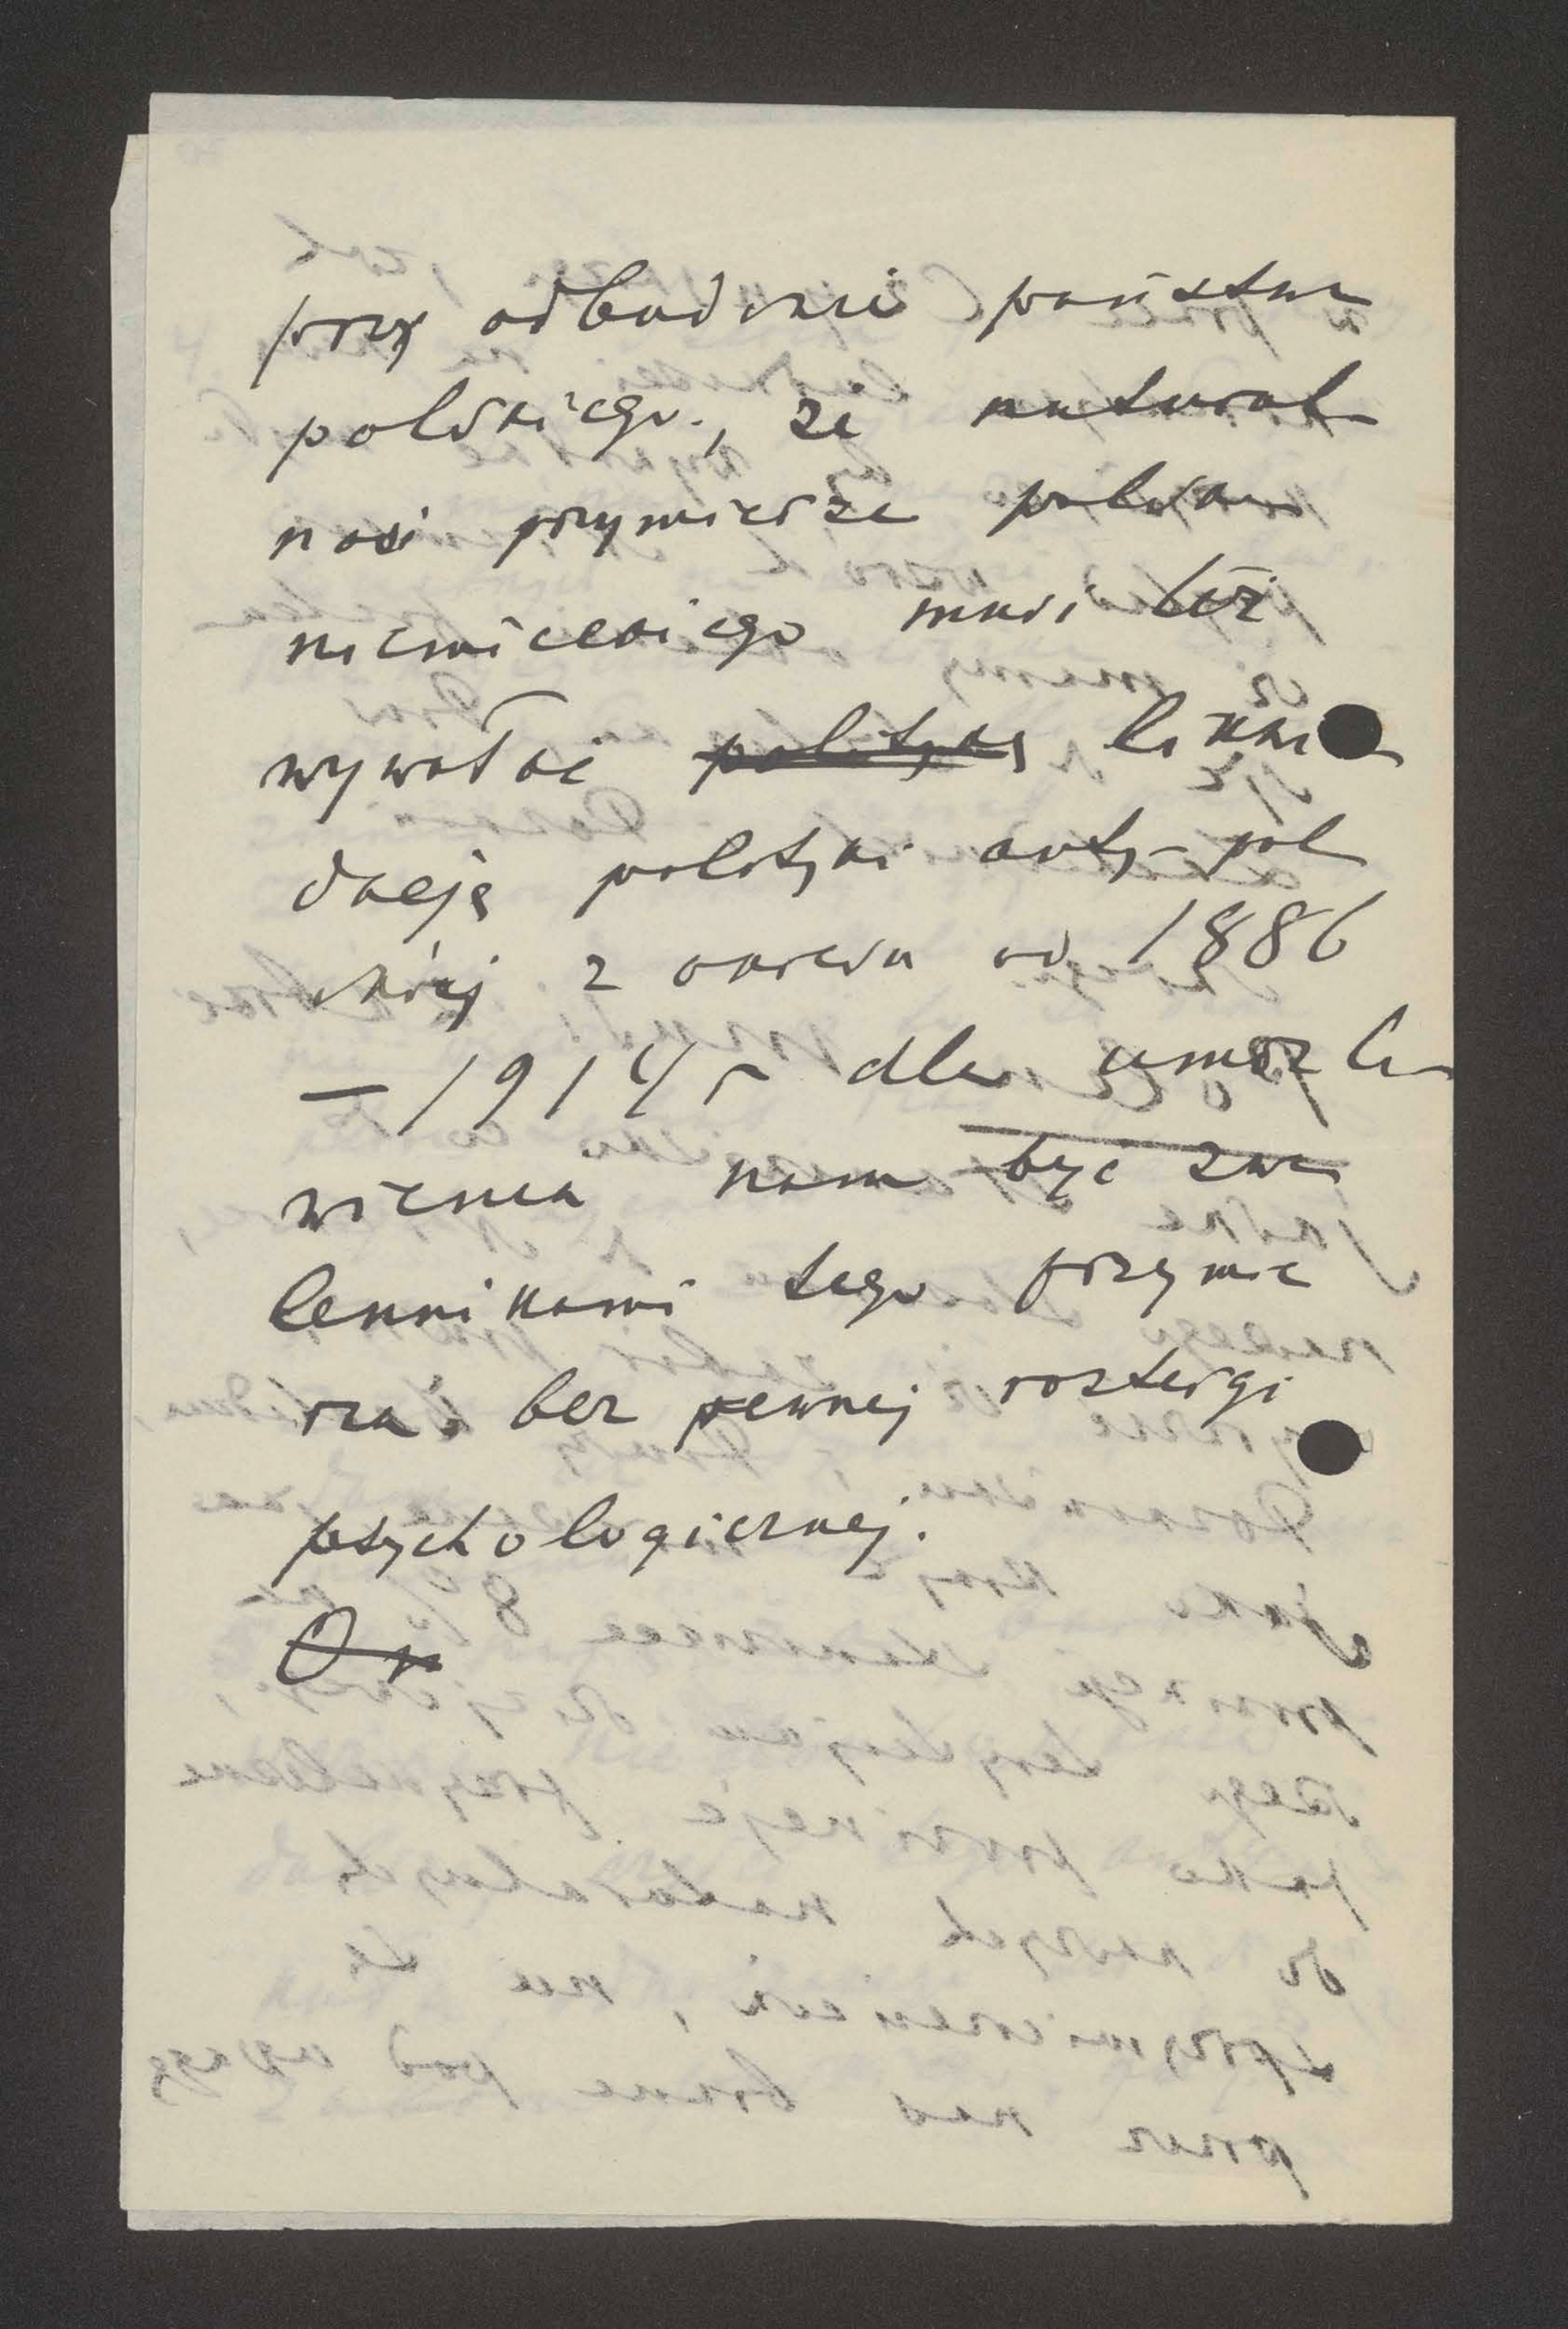 przy odbudowie państwa
polskiego, że natural
ność przymierza polsko
niemieckiego musi też
wywołać politykę likwi
dację polityki anty-pol
skiej z okresu od 1886
– 1914 r dla umożli
wienia nam być zwo
lennikami tego przymie
rza bez pewnej rozterki
psychologicznej.